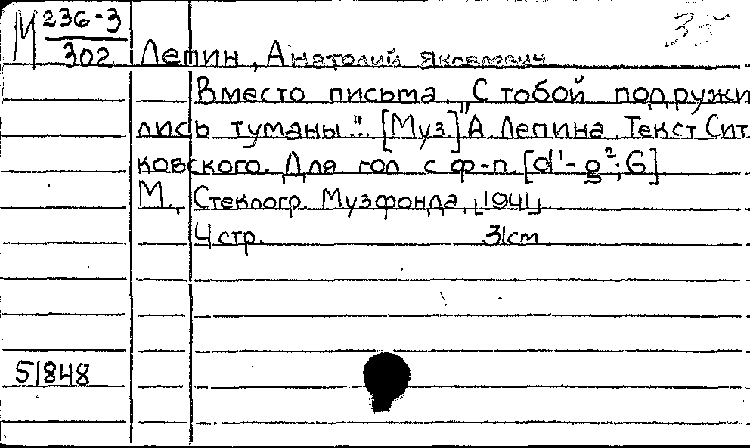 М 236-3
302 Лепин, Анатолий Яковлевич
Вместо письма „С тобой подружи
лись туманы". [Муз.] А. Лепина. Текст Сит
ковского. Для гол. с ф-п. [d¹-g²; G]
М., Стеклогр. Музфонда, [1941]
4 стр. 31 см
51848